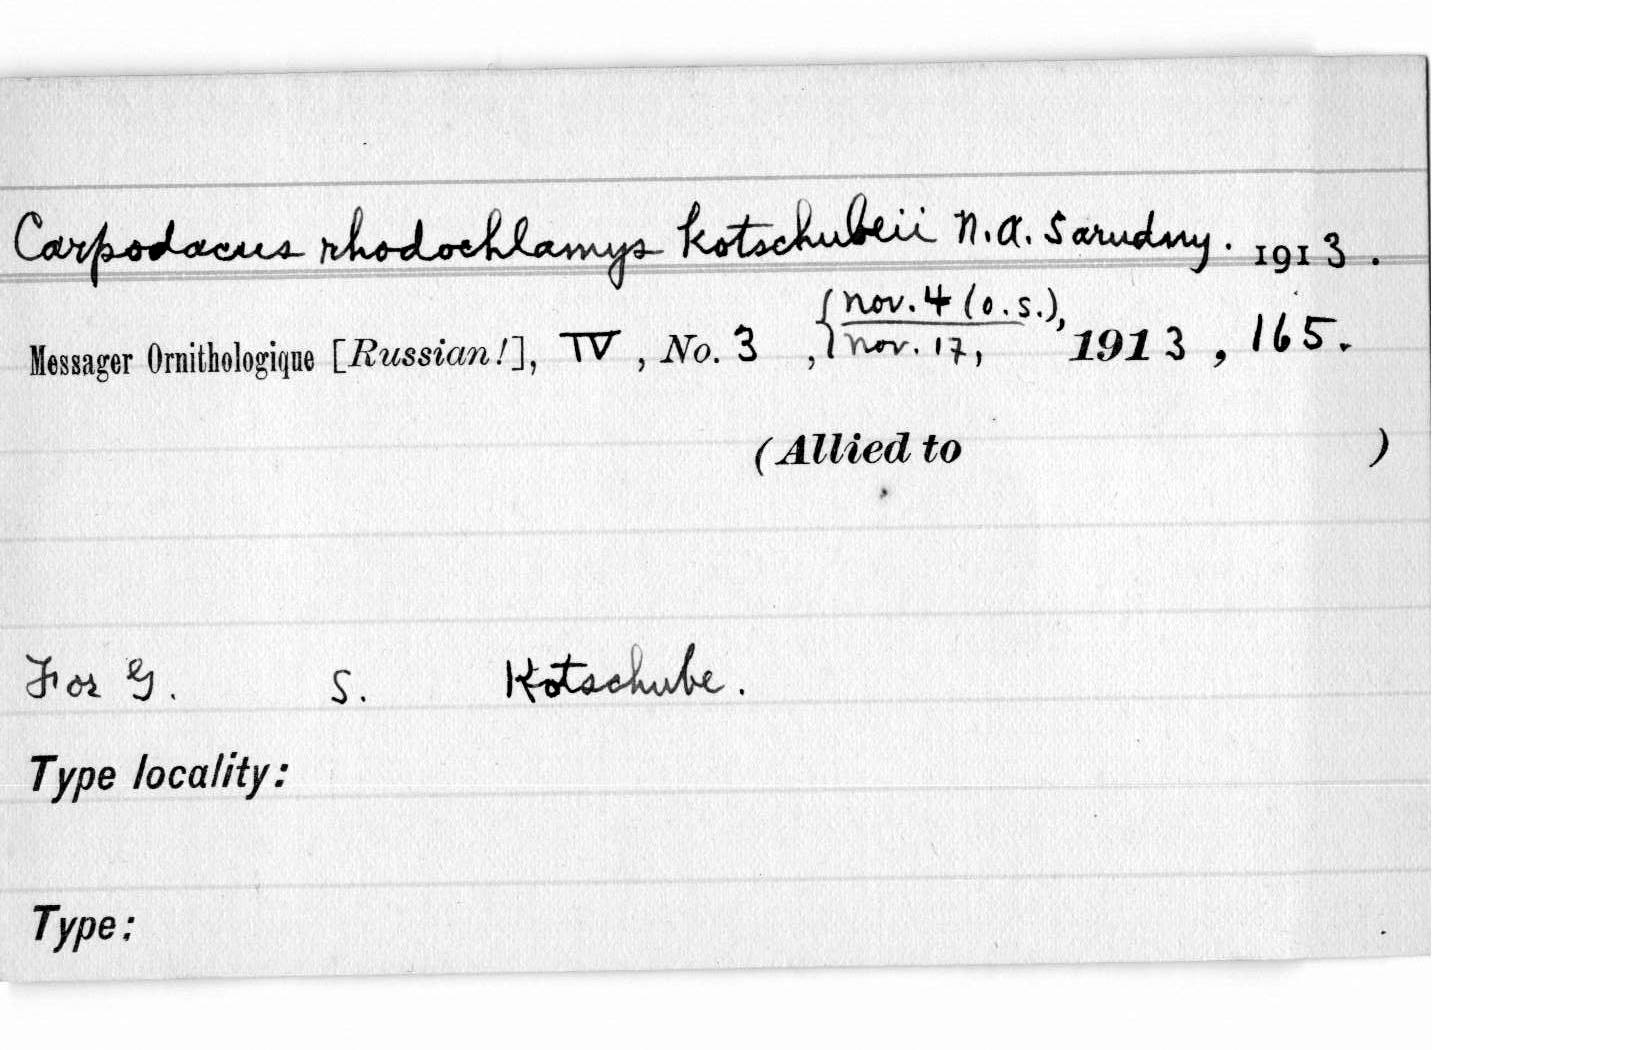 Carpodacus rhodochlamys kotschubeii N.A. Sarudny. 1913.
Messager Ornithologique [Russian!], IV, No. 3, {Nov. 4 (o.s.), Nov. 17, 1913, 165.
(Allied to )
For G. S. Kotschube.
Type locality:
Type: